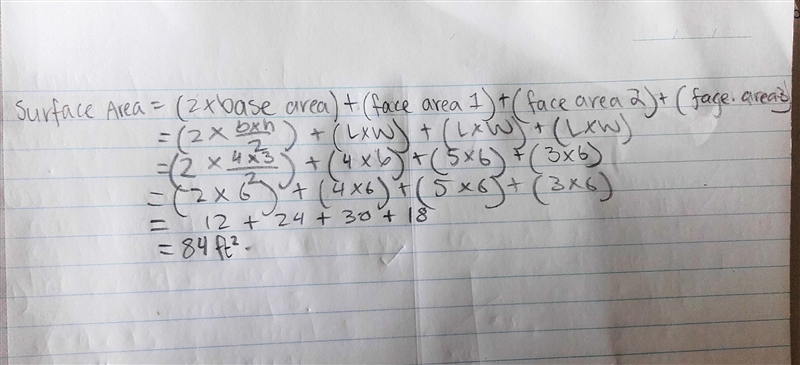 Surface Area = (2 x base area) + (face area 1) + (face area 2) + (face area 3)
= (2 x bxh/2) + (LxW) + (LxW) + (LxW)
= (2 x 4x3/2) + (4x6) + (5x6) + (3x6)
= (2 x 6) + (4x6) + (5x6) + (3x6)
= 12 + 24 + 30 + 18
= 84 ft².